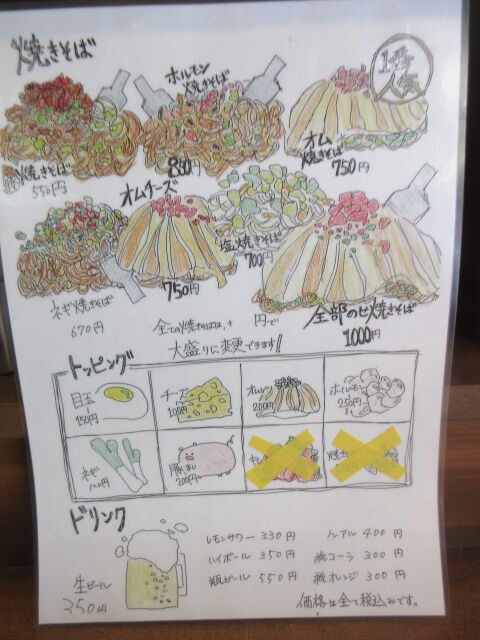 焼きそば
1番
人気
ホルモン
焼きそば
850円
オム
焼きそば
750円
焼きそば
550円
オムチーズ
750円
塩焼きそば
700円
ネギ焼きそば
670円
全部のせ焼きそば
1000円
全ての焼きそばは、+ 円で
大盛りに変更できます!
トッピング
目玉
150円
チーズ
100円
オムレツ
200円
ホルモン
250円
ネギ
豚
200円
ドリンク
生ビール
350円
レモンサワー 330円
ハイボール 350円
瓶ビール 550円
ノンアル 400円
瓶コーラ 300円
瓶オレンジ 300円
価格は全て税込みです。